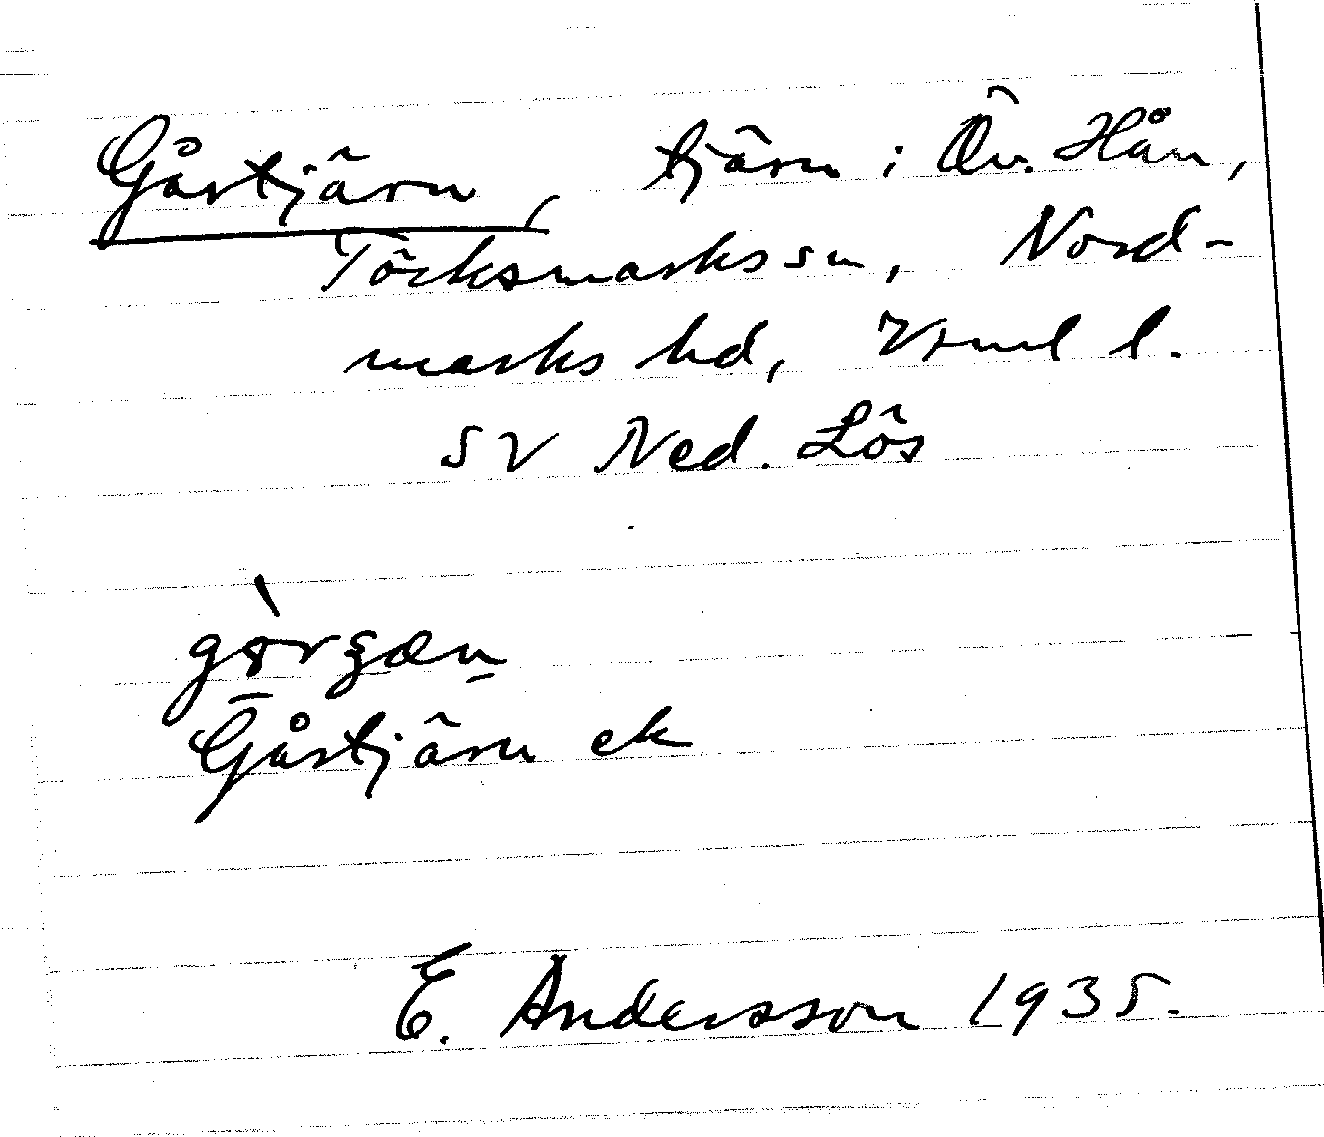 Gåstjärn, tjärn i Öv. Hån,
Töcksmarks sn, Nord-
marks hd, Vrml l.
SV Ned. Lös
Gåstjärn ek
E. Andersson 1935.